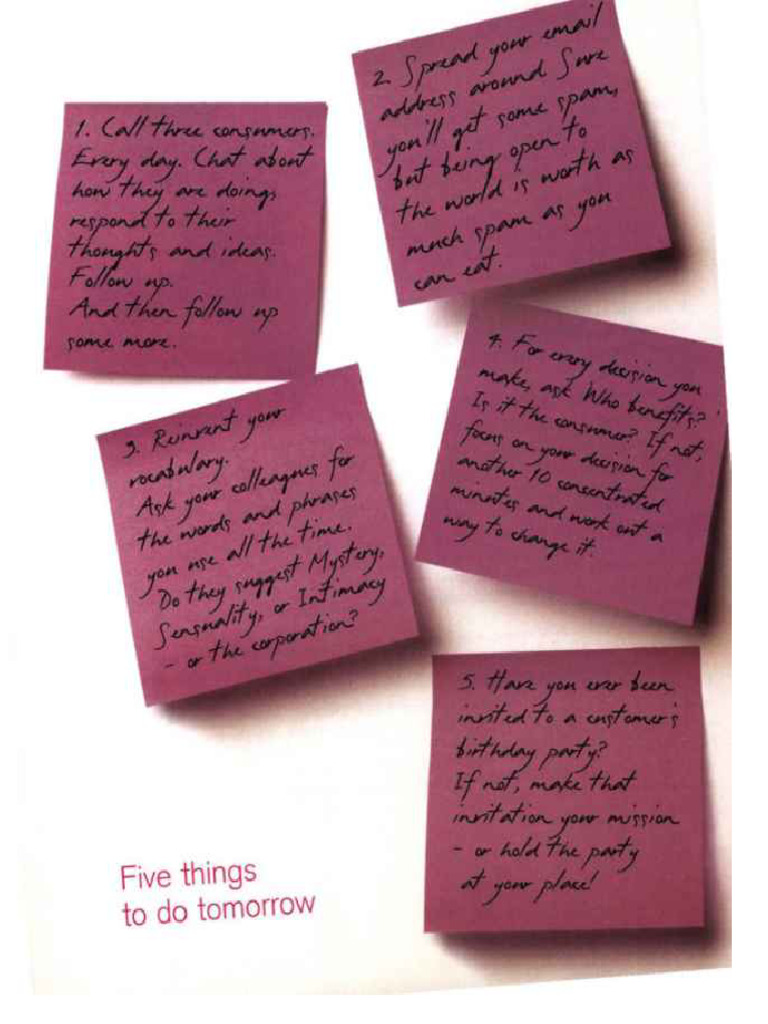 1. Call three consumers.
Every day. Chat about
how they are doing,
respond to their
thoughts and ideas.
Follow up.
And then follow up
some more.
2. Spread your email
address around. Sure
you'll get some spam,
but being open to
the world is worth as
much spam as you
can eat.
3. Reinvent your
vocabulary.
Ask your colleagues for
the words and phrases
you use all the time.
Do they suggest Mystery,
Sensuality, or Intimacy
- or the corporation?
4. For every decision you
make, ask Who benefits?
Is it the consumer? If not,
focus on your decision for
another 10 concentrated
minutes and work out a
way to change it.
5. Have you ever been
invited to a customer's
birthday party?
If not, make that
invitation your mission
- or hold the party
at your place!
Five things
to do tomorrow